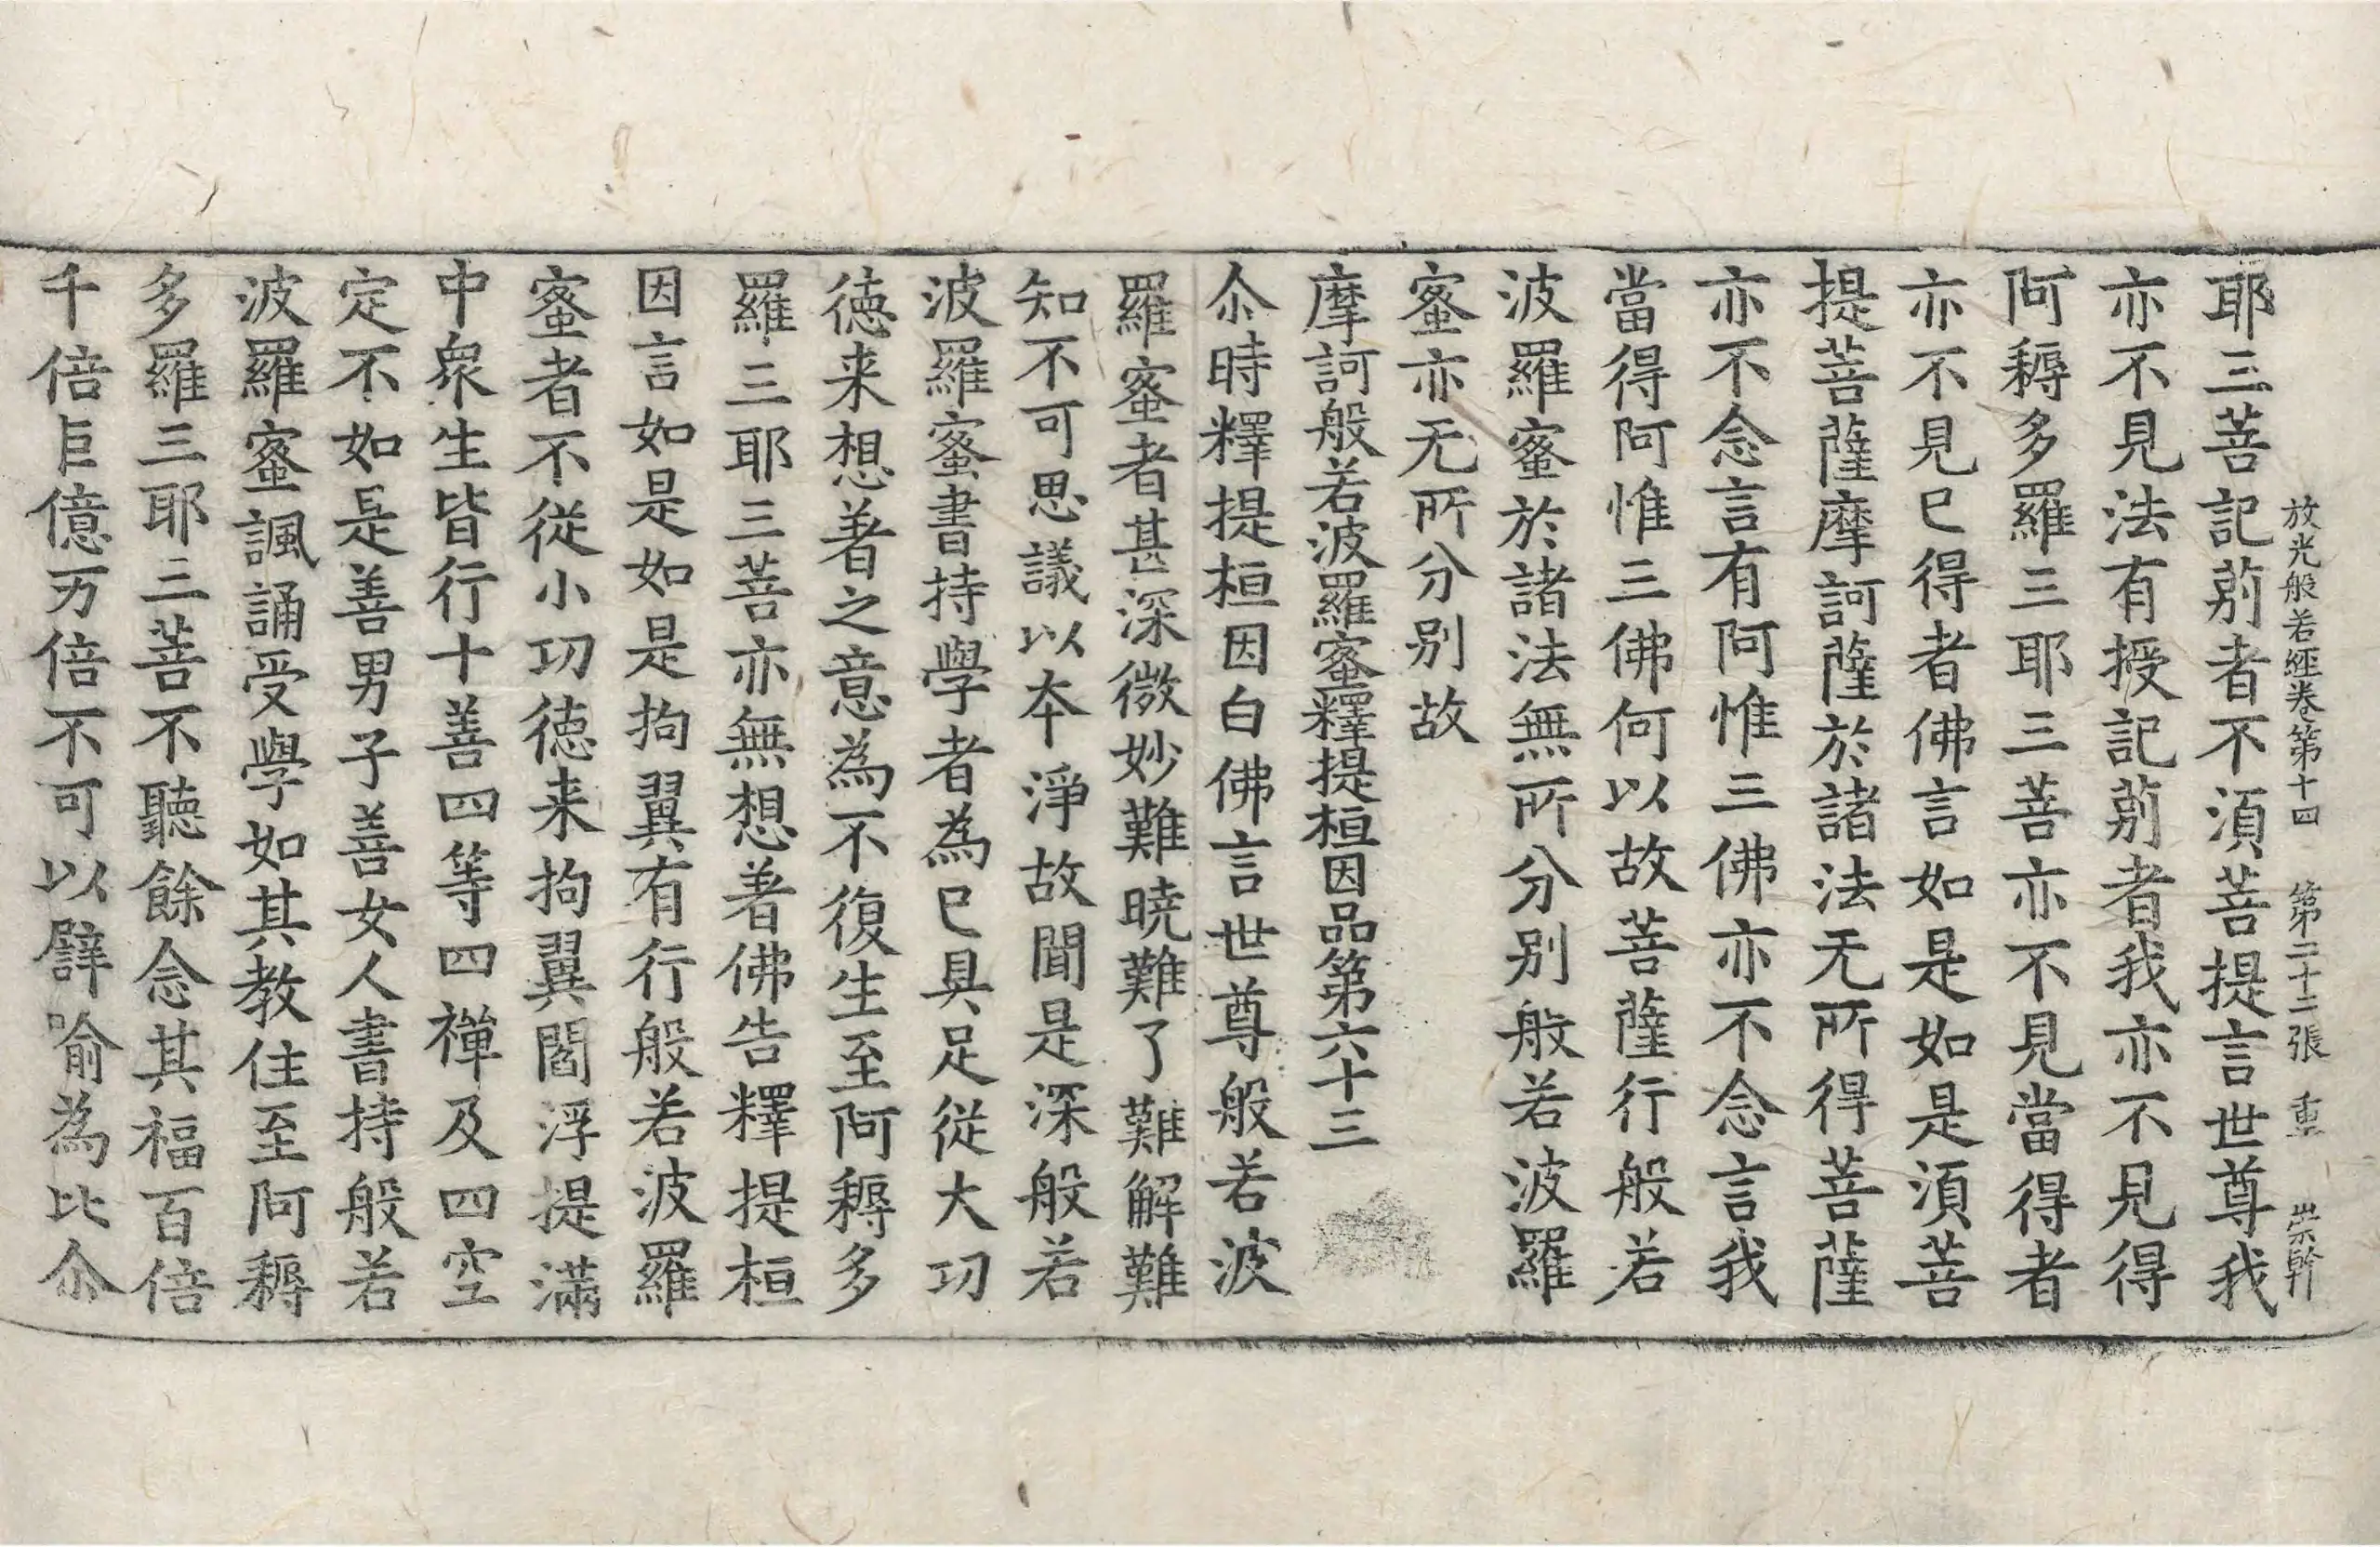 放光般若經卷第十四 第二十二張 重 崇幹
耶三菩記莂者不湏菩提言世尊我
亦不見法有授記莂者我亦不見得
阿耨多羅三耶三菩亦不見當得者
亦不見已得者佛言如是如是湏菩
提菩薩摩訶薩於諸法无所得菩薩
亦不念言有阿惟三佛亦不念言我
當得阿惟三佛何以故菩薩行般若
波羅蜜於諸法無所分别般若波羅
蜜亦无所分别故
摩訶般若波羅蜜釋提桓因品第六十三
尒時釋提桓因白佛言世尊般若波
羅蜜者甚深微妙難曉難了難解難
知不可思議以本淨故聞是深般若
波羅蜜書持學者為已具足從大功
徳来想著之意為不復生至阿耨多
羅三耶三菩亦無想著佛告釋提桓
因言如是如是拘翼有行般若波羅
蜜者不從小功徳来拘翼閻浮提滿
中衆生皆行十善四等四禪及四空
定不如是善男子善女人書持般若
波羅蜜諷誦受學如其教住至阿耨
多羅三耶三菩不聽餘念其福百倍
千倍巨億万倍不可以譬喻為比尒